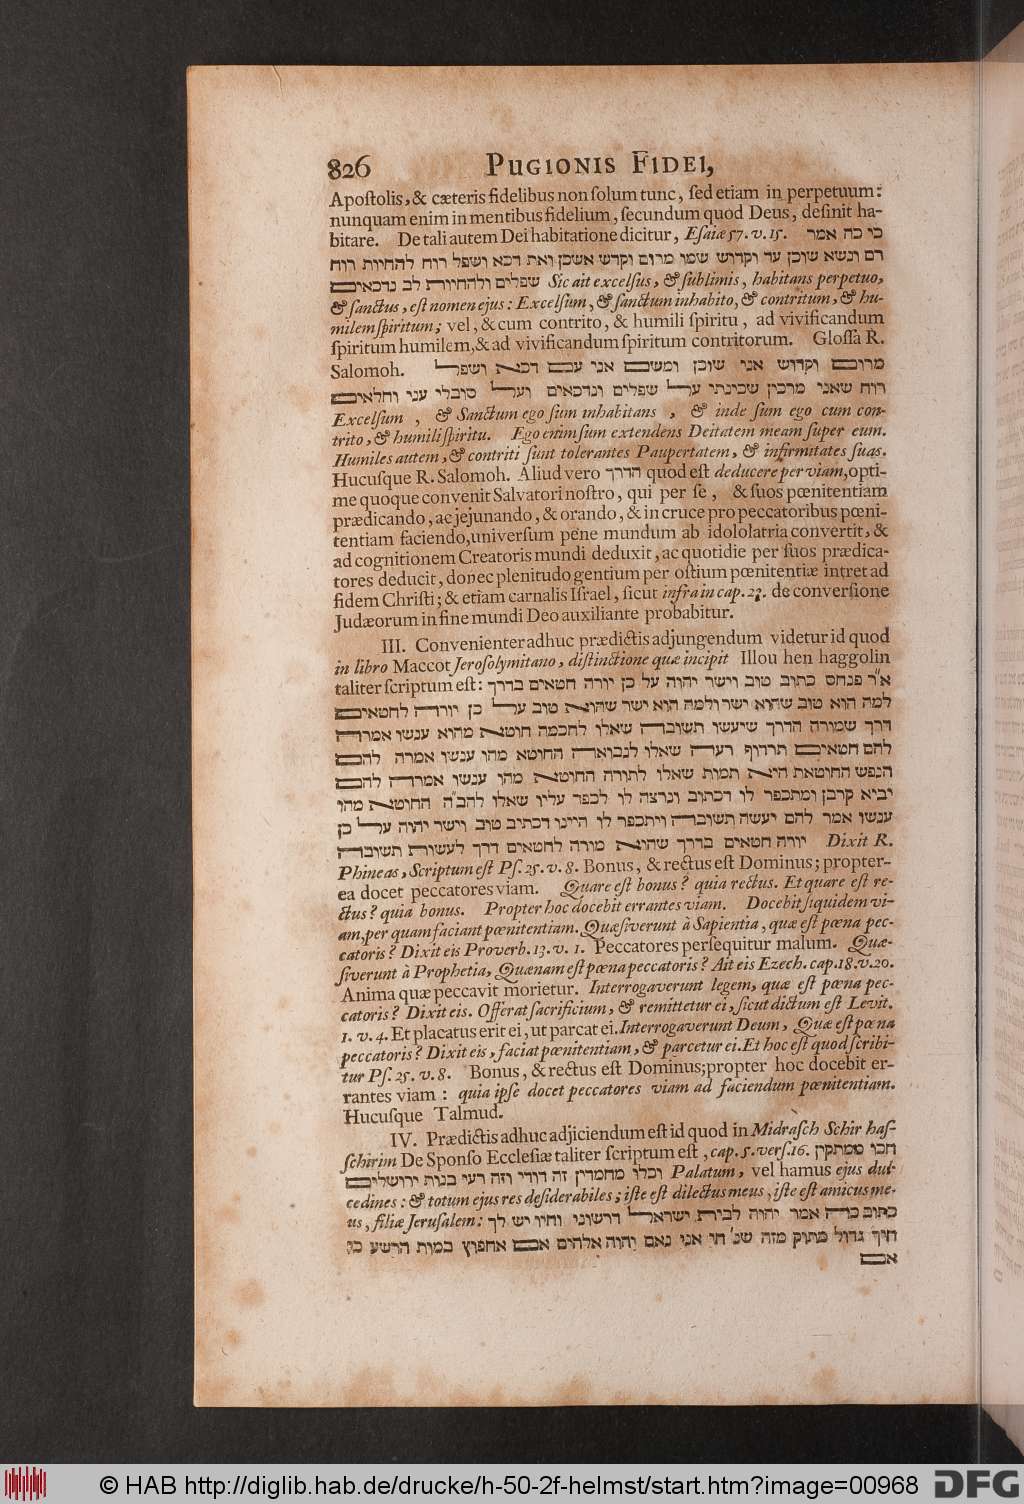 826 PUGIONIS FIDEI,
Apoſtolis, & cæteris fidelibus non ſolum tunc, ſed etiam in perpetuum:
nunquam enim in mentibus fidelium, ſecundum quod Deus, deſinit ha-
bitare. De tali autem Dei habitatione dicitur, Eſaiæ 57. v. 15. כי כה אמר
רם ונשא שוכן עד וקדוש שמו מרום וקדש אשכן ואת דכא ושפל רוח להחיות רוח
שפלים ולהחיות לב נדכאים Sic ait excelſus, & ſublimis, habitans perpetuo,
& ſanctus, eſt nomen ejus: Excelſum, & ſanctum inhabito, & contritum, & hu-
milem ſpiritum; vel, & cum contrito, & humili ſpiritu, ad vivificandum
ſpiritum humilem, & ad vivificandum ſpiritum contritorum. Gloſſa R.
Salomoh. מרום וקדוש אני שוכן ומשם אני עם דכא ושפל
רוח שאני מרכין שכינתי על שפלים ונדכאים ועל סובלי עני וחלאים
Excelſum, & Sanctum ego ſum inhabitans, & inde ſum ego cum con-
trito, & humili ſpiritu. Ego enim ſum extendens Deitatem meam ſuper eum.
Humiles autem, & contriti ſunt tolerantes Paupertatem, & infirmitates ſuas.
Hucuſque R. Salomoh. Aliud vero הדרך quod eſt deducere per viam, opti-
me quoque convenit Salvatori noſtro, qui per ſe, & ſuos pœnitentiam
prædicando, ac jejunando, & orando, & in cruce pro peccatoribus pœni-
tentiam faciendo, univerſum pene mundum ab idololatria convertit, &
ad cognitionem Creatoris mundi deduxit, ac quotidie per ſuos prædica-
tores deducit, donec plenitudo gentium per oſtium pœnitentiæ intret ad
fidem Chriſti; & etiam carnalis Iſrael, ſicut infra in cap. 23. de converſione
Judæorum in fine mundi Deo auxiliante probabitur.
III. Convenienter adhuc prædictis adjungendum videtur id quod
in libro Maccot Jeroſolymitano, diſtinctione quæ incipit Illou hen haggolin
taliter ſcriptum eſt: א"ר פנחס כתוב טוב וישר יהוה על כן יורה חטאים בדרך
למה הוא טוב שהוא ישר ולמה הוא ישר שהוא טוב על כן יורה לחטאים
דרך שמורה הדרך שיעשו תשובה שאלו לחכמה חוטא מהוא ענשו אמרה
להם חטאים תרדוף רעה שאלו לנבואה החוטא מהו ענשו אמרה להם
הנפש החוטאת היא תמות שאלו לתורה החוטא מהו ענשו אמרה להם
יביא קרבן ומתכפר לו דכתוב ונרצה לו לכפר עליו שאלו להב"ה החוטא מהו
ענשו אמר להם יעשה תשובה ויתכפר לו היינו דכתיב טוב וישר יהוה על כן
יורה חטאים בדרך שהוא מורה לחטאים דרך לעשות תשובה Dixit R.
Phineas, Scriptum eſt Pſ. 25. v. 8. Bonus, & rectus eſt Dominus; propter-
ea docet peccatores viam. Quare eſt bonus? quia rectus. Et quare eſt re-
ctus? quia bonus. Propter hoc docebit errantes viam. Docebit ſiquidem vi-
am, per quam faciant pœnitentiam. Quæſiverunt à Sapientia, quæ eſt pœna pec-
catoris? Dixit eis Proverb. 13. v. 1. Peccatores perſequitur malum. Quæ-
ſiverunt à Prophetia, Quænam eſt pœna peccatoris? Ait eis Ezech. cap. 18. v. 20.
Anima quæ peccavit morietur. Interrogaverunt legem, quæ eſt pœna pec-
catoris? Dixit eis. Offerat ſacrificium, & remittetur ei, ſicut dictum eſt Levit.
1. v. 4. Et placatus erit ei, ut parcat ei. Interrogaverunt Deum, Quæ eſt pœna
peccatoris? Dixit eis, faciat pœnitentiam, & parcetur ei. Et hoc eſt quod ſcribi-
tur Pſ. 25. v. 8. Bonus, & rectus eſt Dominus; propter hoc docebit er-
rantes viam: quia ipſe docet peccatores viam ad faciendum pœnitentiam.
Hucuſque Talmud.
IV. Prædictis adhuc adjiciendum eſt id quod in Midraſch Schir haſ-
ſchirim De Sponſo Eccleſiæ taliter ſcriptum eſt, cap. 5. verſ. 16. חכו ממתקין
וכלו מחמדין זה דודי וזה רעי בנות ירושלים Palatum, vel hamus ejus dul-
cedines: & totum ejus res deſiderabiles; iſte eſt dilectus meus, iſte eſt amicus me-
us, filiæ Jeruſalem: כתוב כה אמר יהוה לבית ישראל דרשוני וחיו יש לך
חיך גדול מתוק מזה שנ' חי אני נאם יהוה אלהים אם אחפוץ במות הרשע כי
אם
© HAB http://diglib.hab.de/drucke/h-50-2f-helmst/start.htm?image=00968 DFG